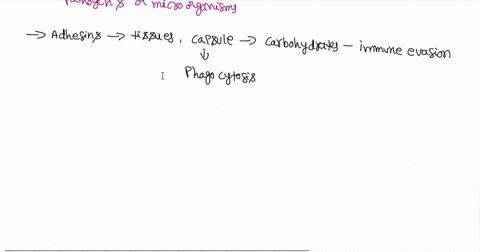 Pathogens or microorganisms
→ Adhesins → tissues, capsule → Carbohydrates - immune evasion
↓
Phagocytosis